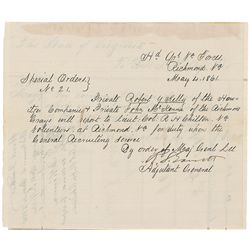 Hd Qrs Va Forces,
Richmond, Va
May 4, 1861.
Special Orders
No 21.
Private Robert Y Kelly of the How-
Company & Private John of the Richmond
Grays will report to Lieut. Col. R H Chilton Va
Volunteers, at Richmond, Va for duty upon the
General Recruiting service.
By order of Maj Genl Lee
R. S. Garnett
Adjutant General